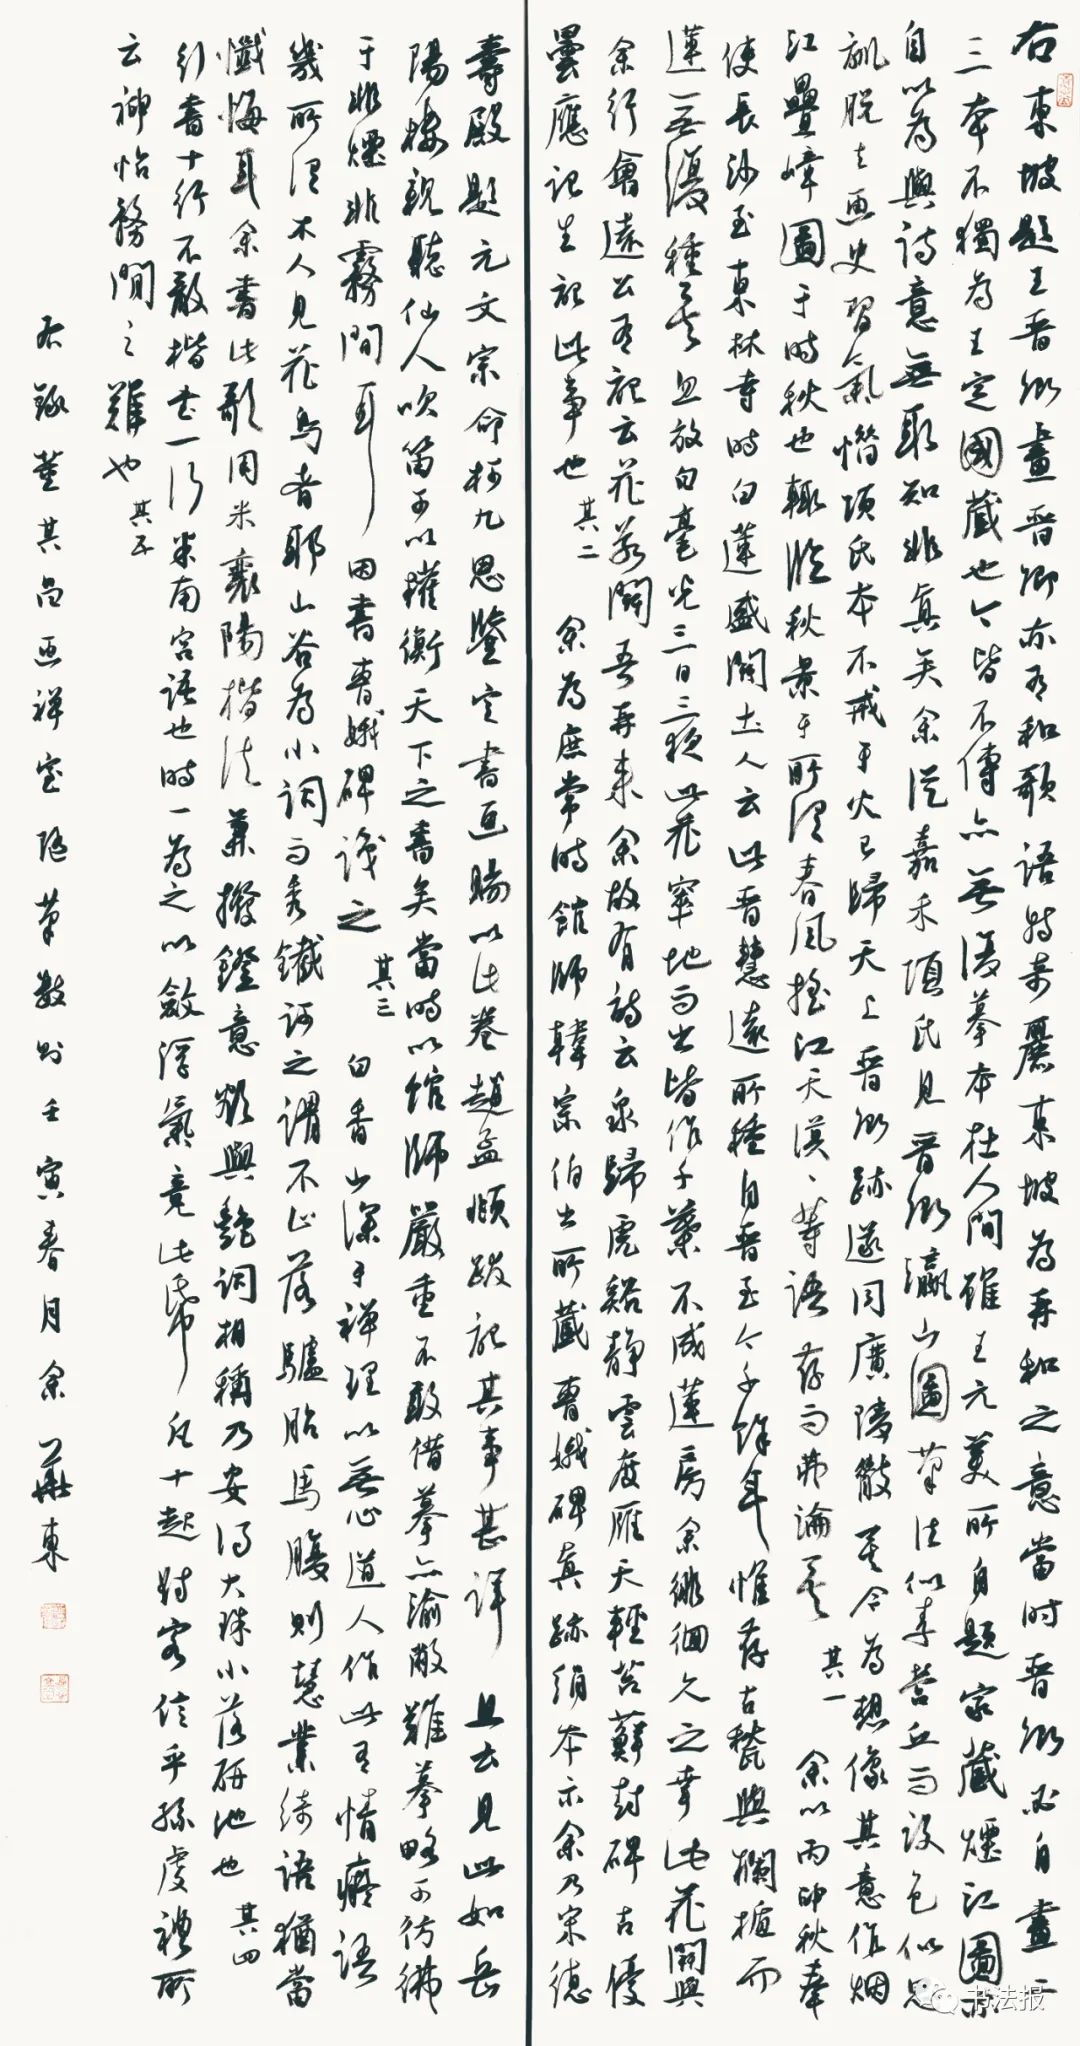 右東坡題王晉卿畫晉卿亦有和歌語特奇麗東坡為再和之意當時晉卿必自畫二
三本不獨為王定國藏也今皆不傳亦無復摹本在人間雖王元美所自題家藏煙江圖亦
自以為與詩意無取知非真矣余從嘉禾項氏見晉卿瀛山圖筆法似李營丘而設色似思
訓脫去畫史習氣惜項氏本不戒于火已歸天上晉卿跡遂同廣陵散矣今為想像其意作烟
江疊嶂圖于時秋也輒臨秋景于所謂春風搖江天漠漠等語存而弗論矣 其一 余以丙申秋奉
使長沙至東林寺時白蓮盛開土人云此晉慧遠所種自晉至今千餘年惟存古甃與欄楯而
蓮無復種矣忽放白毫光三日三夜此花窣地而出皆作千葉不成蓮房余徘徊久之幸此花開與
余行會遠公有記云花若開吾再來余故有詩云泉歸虎谿靜雲度雁天輕苔蘚封碑古優
曇應記生記此事也 其二 余為庶常時館師韓宗伯出所藏曹娥碑真跡絹本示余乃宋德
壽殿題元文宗命柯九思鑒定書畫賜以此卷趙孟頫跋記其事甚詳 且云見此如岳
陽樓親聽仙人吹笛可以權衡天下之書矣當時以館師嚴重不敢借摹亦渝敝難摹略可彷彿
于非煙非霧間耳 因書曹娥碑識之 其三 白香山深于禪理以無心道人作此有情癡語
幾所謂木人見花鳥者耶山谷為小詞而秀鐵訶之謂不止落驢胎馬腹則慧業綺語猶當
懺悔耳余書此歌用米襄陽楷法兼撥鐙意欲與艷詞相稱乃安得大珠小落研池也 其四
行書十行不敵楷書一行米南宮語也時一為之以斂浮氣竟此紙凡十起對客信乎孫虔禮所
云神怡務閒之難也 其五
右錄董其昌畫禪室隨筆數則壬寅春月余華東
书法报